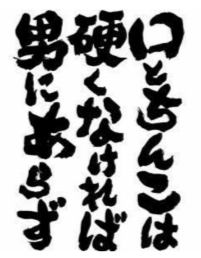 口とちんこは
硬くなければ
男にあらず